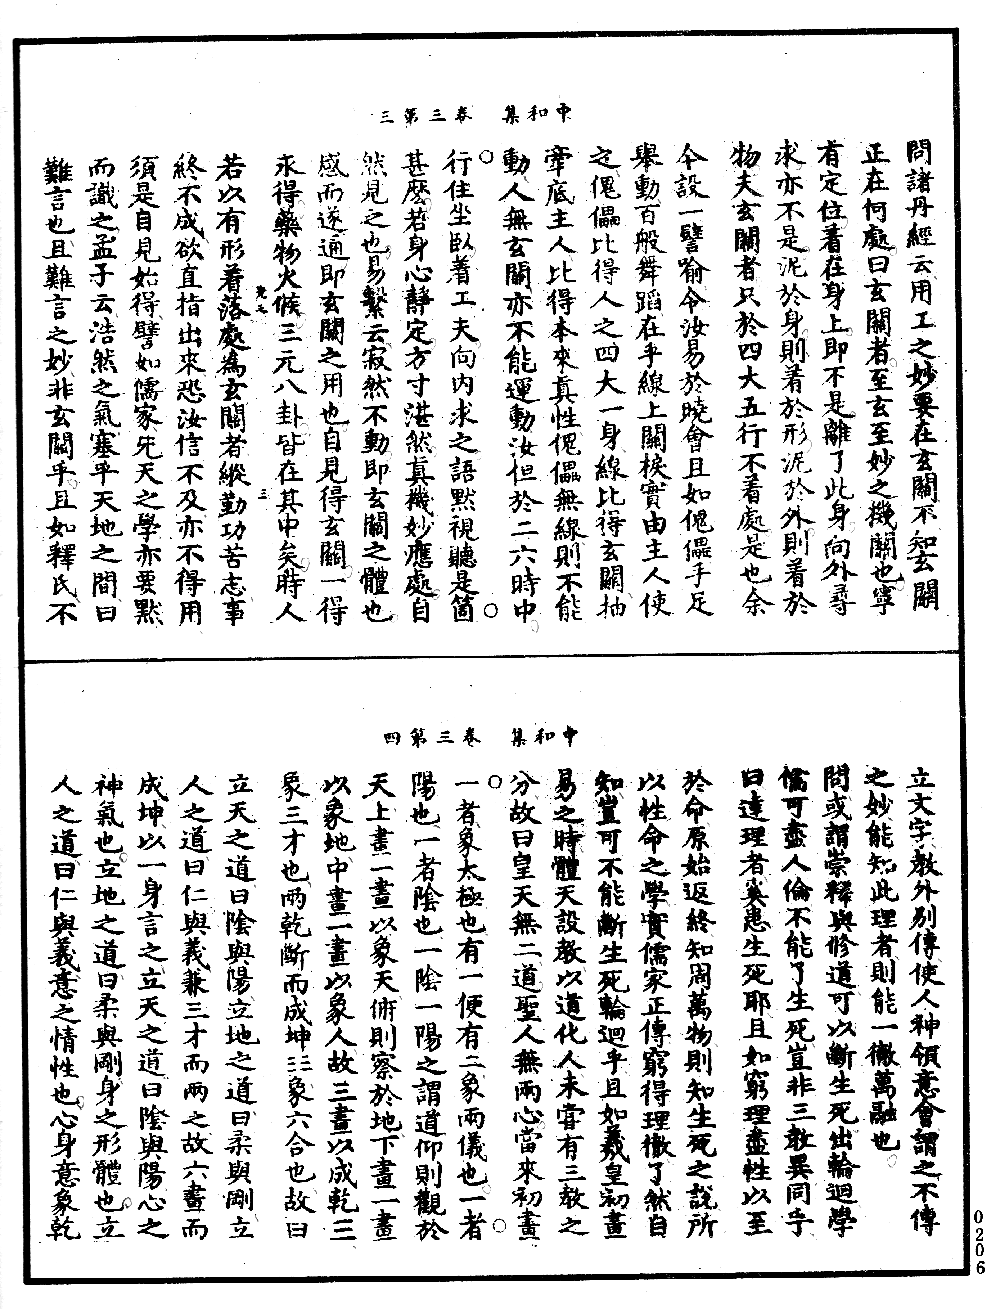 中和集　卷三第三
問諸丹經云用工之妙要在玄關不知玄關
正在何處曰玄關者至玄至妙之機關也寧
有定位着在身上即不是離了此身向外尋
求亦不是泥於身則着於形泥於外則着於
物夫玄關者只於四大五行不着處是也余
今設一譬喻令汝易於曉會且如傀儡手足
舉動百般舞蹈在乎線上關棙實由主人使
之傀儡比得人之四大一身線比得玄關抽
牽底主人比得本來真性傀儡無線則不能
動人無玄關亦不能運動汝但於二六時中
行住坐臥着工夫向內求之語默視聽是箇
甚麼若身心靜定方寸湛然真機妙應處自
然見之也易繫云寂然不動即玄關之體也
感而遂通即玄關之用也自見得玄關一得
永得藥物火候三元八卦皆在其中矣時人
若以有形着落處為玄關者縱勤功苦志事
終不成欲直指出來恐汝信不及亦不得用
須是自見始得譬如儒家先天之學亦要默
而識之孟子云浩然之氣塞乎天地之間曰
難言也且難言之妙非玄關乎且如釋氏不
三
中和集　卷三第四
立文字教外別傳使人神領意會謂之不傳
之妙能知此理者則能一徹萬融也
問或謂崇釋與修道可以斷生死出輪迴學
儒可盡人倫不能了生死豈非三教異同乎
曰達理者奚患生死耶且如窮理盡性以至
於命原始返終知周萬物則知生死之說所
以性命之學實儒家正傳窮得理徹了然自
知豈可不能斷生死輪迴乎且如羲皇初畫
易之時體天設教以道化人未嘗有三教之
分故曰皇天無二道聖人無兩心當來初畫
一者象太極也有一便有二象兩儀也一者
陽也一者陰也一陰一陽之謂道仰則觀於
天上畫一畫以象天俯則察於地下畫一畫
以象地中畫一畫以象人故三畫以成乾三
象三才也兩乾斷而成坤三三象六合也故曰
立天之道曰陰與陽立地之道曰柔與剛立
人之道曰仁與義兼三才而兩之故六畫而
成坤以一身言之立天之道曰陰與陽心之
神氣也立地之道曰柔與剛身之形體也立
人之道曰仁與義意之情性也心身意象乾
0206